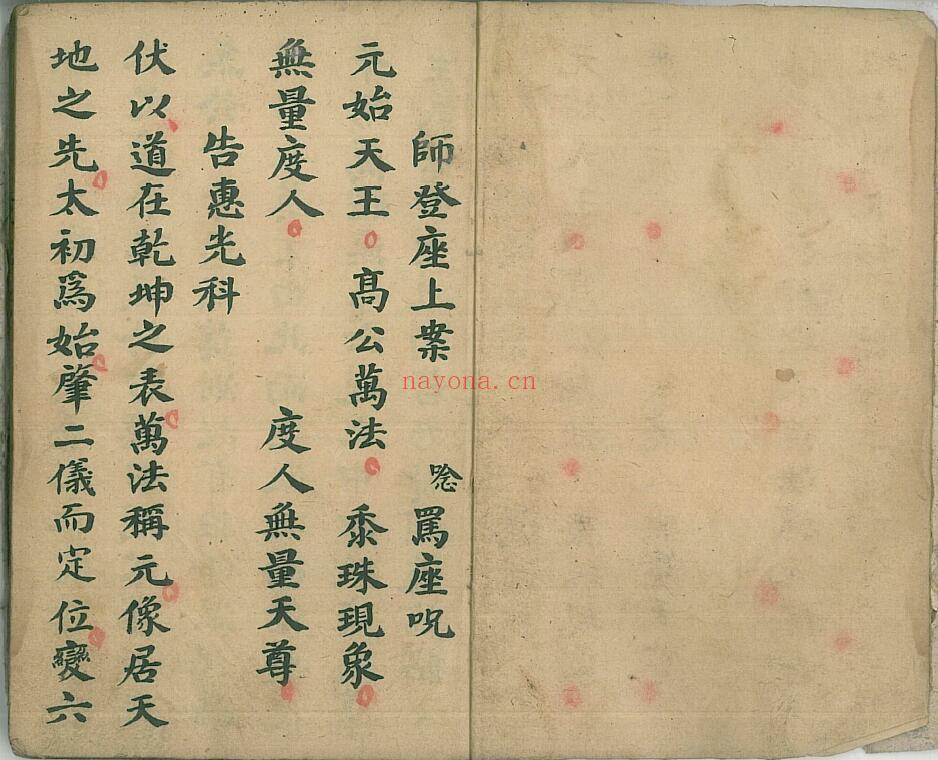 師登座上案 唸罵座呪
元始天王 高公萬法 黍珠現象
無量度人 度人無量天尊
告惠光科
伏以道在乾坤之表萬法稱元像居天
地之先太初爲始肇二儀而定位變六
nayona.cn